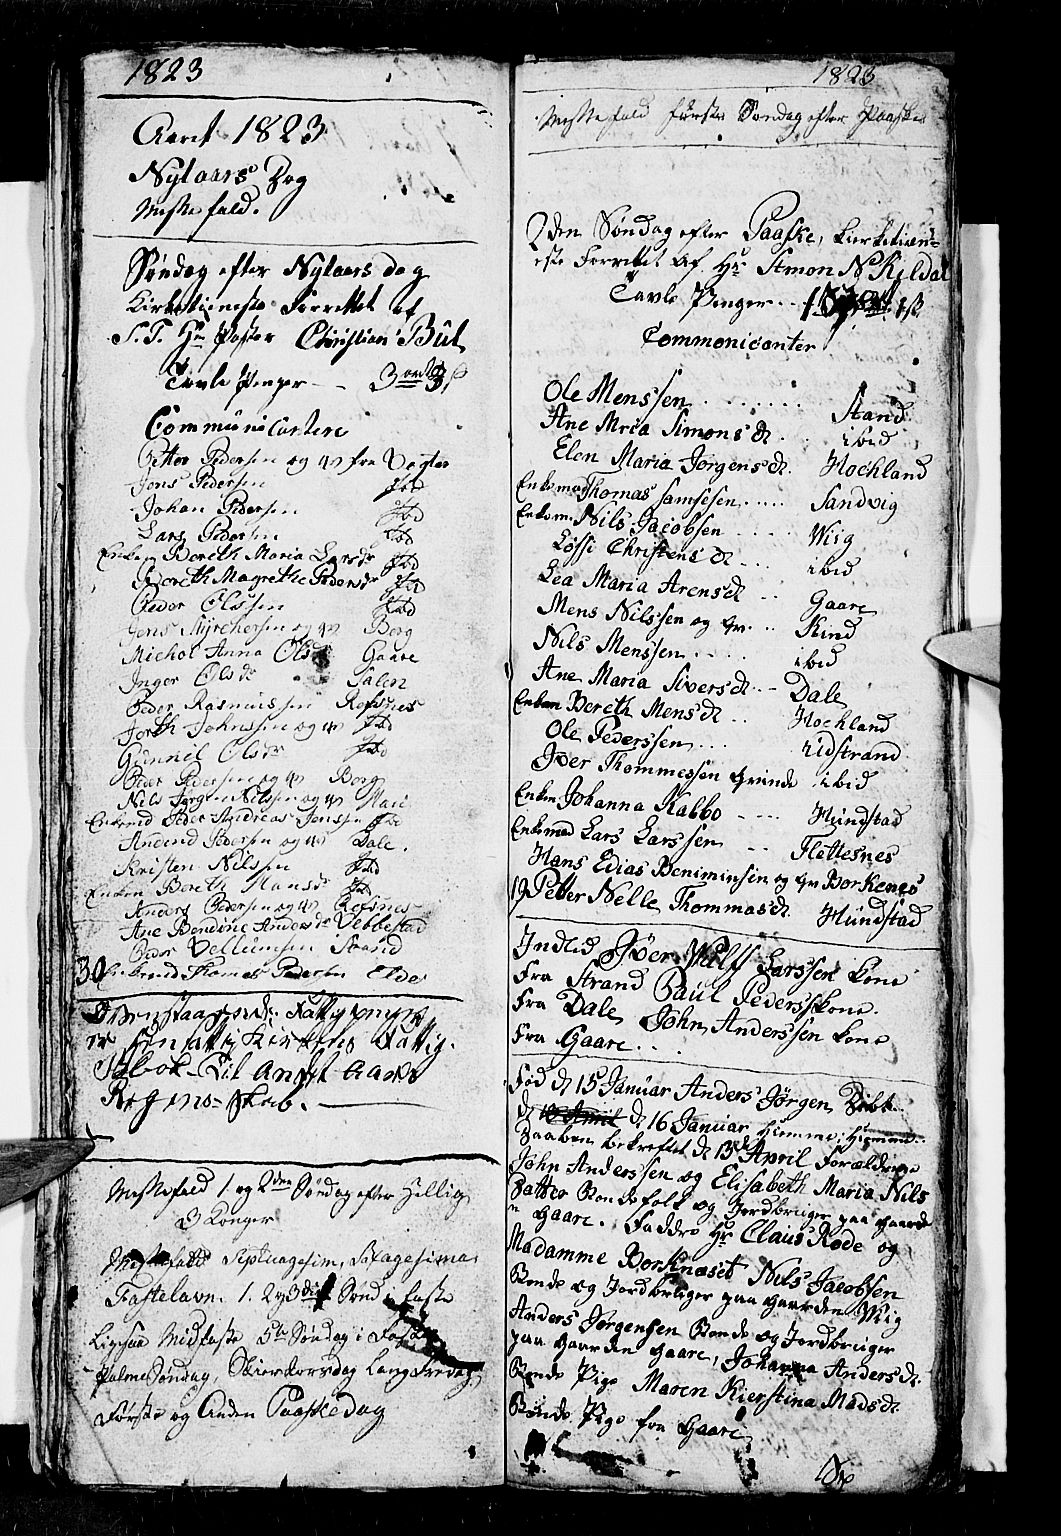 1823
Aaret 1823
Nylaars Dag
Messefald.
Søndag efter Nylaars dag
Kirketieneste Forrettet af
S. T. Hr Pastor Christian Bul
Tavle Penger - - 3 ort
Communicantere
Petter Pedersen og qv fra Vogter
Jens Pedersen Ibd
Johan Pedersen Ibd
Lars Pedersen Ibd
Enken Bereth Maria Larsdr Ibd
Bereth Magrethe Pedersdr Ibd
Peder Olssen Ibd
Jens og qv Berg
Michol Anna Olsdr Gaare
Inger Olsdr Salen
Peder Rasmussen Refsnes
Johnssen og qv Ibd
Gunnil Olsdr Ibd
Peder Pedersen og qv Berg
Nils Jørgen Nilssen og qv
Enkemd Peder Andreas Jenssen Ibd
Anderd Pedersen og qv Dale.
Kristen Nilssen Ibd
Enken Bereth Hansdr Ibd
Anders Pedersen og qv Refsnes
Ane Bendine Andersdr Vebbestad
Peder Vellumsen Strand
30 Enkemd Thomas Pedersen Elde
Fattig
Til
Regnskab.
Messefald 1. og 2den Søndag efter Hellig
3 Konger
Messefald Septuagesim, Sexagesima
Fastelavn. 1. 2 og 3die Sønd i faste
Ligesaa Midfaste 5te Søndag i Faste
Palme Søndag, Skiertorsdag Lang Fredag
Første og Anden Paaskedag
1823
Messefald første Søndag efter Paaske
2den Søndag efter Paaske, Kierketien=
este Forrettet Af Hr Simon N Kildal
Tavle Penger - -
Commonicanter
Ole Menssen . . . . . . . . Stand
Ane Mria Simonsdt . . ibid
Elen Maria Jørgensdt. Hochland
Enkemad Thomas Samsesen . . . . . Sandvig
Enkem. Nils Jacobsen . . . . . Wiig
Lossi Christensdt . . . . ibid
Lea Maria Arensdt . . Gaare
Mens Nilssen og qv. . . Kind
Nils Menssen . . . . ibid
Ane Maria Siversdt . . - Dale
Enken Bereth Mensdt . . Hochland
Ole Pederssen . . . udstrand
Iver Thommessen qvinde ibid
Enken Johanna Kabbo - - - - Hundstad
Enkemad Lars Larssen . . Flettesnes
Hans Edias Beniminsen og qv Borkenes
19 Petter Nelle Thommasdt. Hundstad
Indled Iver Larssen kone
Fra Strand Paul Pederss kone.
Fra Dale, John Anderssen kone
Fra Gaare . . .
Fød d 15 Januar Anders Jørgen Døbt
d d 16 Januar Hiemme; Hiemme
Daaben bekreftet d 13d April Forældrene
John Anderssen og Elisabeth Maria Nils
Datter Bondefolk og Jordbruger paa Gaarde
n Gaare. Faddre Hr Claus Rode og
Madamme Borknæset Nils Jacobsen
Bonde og Jordbruger paa Gaarden Wiig
Anders Jørgensen Bonde og Jordbruger
paa Gaarden Gaare, Johanna Andersdt
Bonde Pige Maren Kierstina Madsdt
Bonde Pige fra Gaare